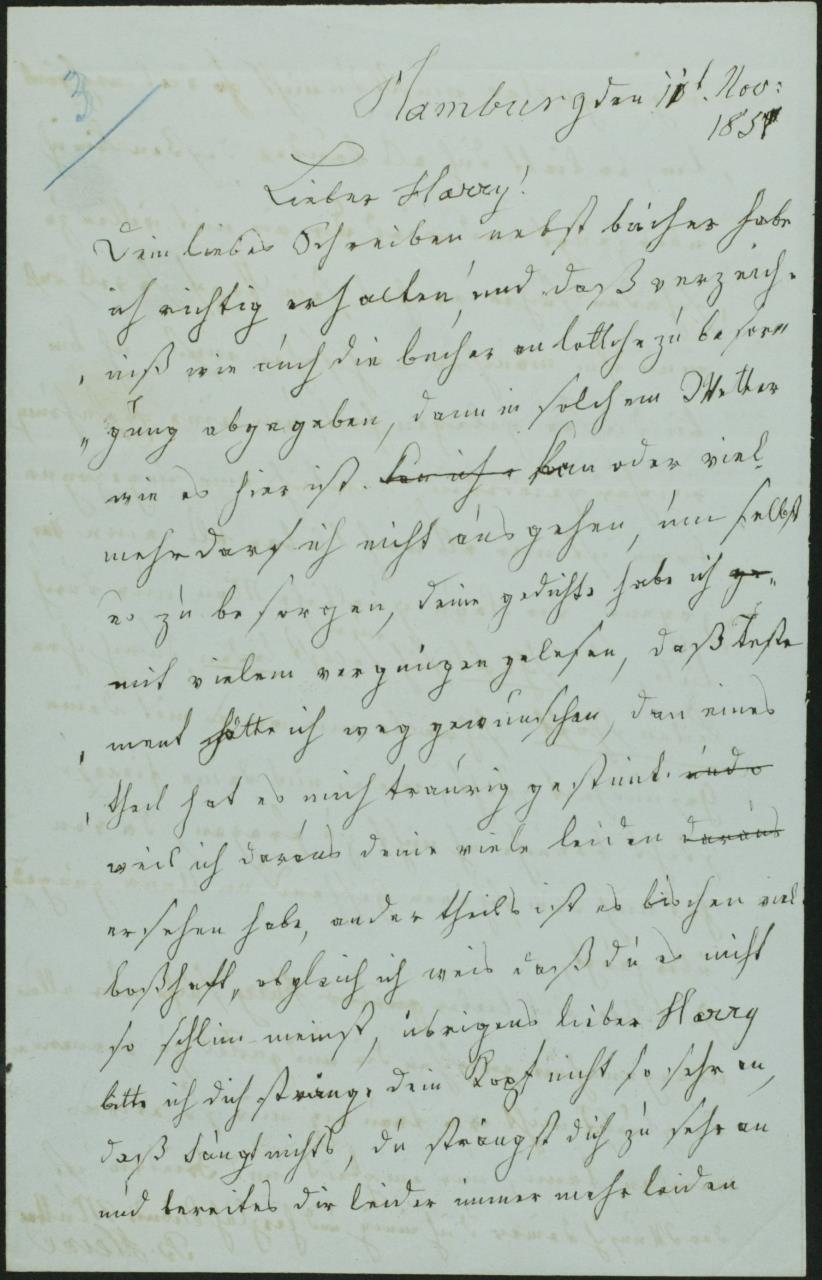 3
Hamburg den 11t. Nov:
1851
Lieber Harry!
Dein liebes Schreiben nebst bücher habe
ich richtig erhalten, und daß verzeich„
„niß wie auch die bücher an lottchen zu besor„
„gung abgegeben, dann in solchem Wetter
wie es hier ist. kan oder viel
mehr darf ich nicht ausgehen, um selbst
es zu besorgen, deine gedichte habe ich ge„
mit vielem vergnügen gelesen, daß Testa
„ment hätte ich weg gewünschen, dan eines
„theil hat es mich traurig gestimt. und
weil ich daraus deine viele leiden daraus
ersehen habe, ander theils ist es bischen viel
boßhaft, obgleich ich weis daß du es nicht
so schlim meinst, übrigens lieber Harry
bitte ich dich stränge dein Kopf nicht so sehr an,
daß taugt nichts, du strängst dich zu sehr an
und bereites dir leider immer mehr leiden